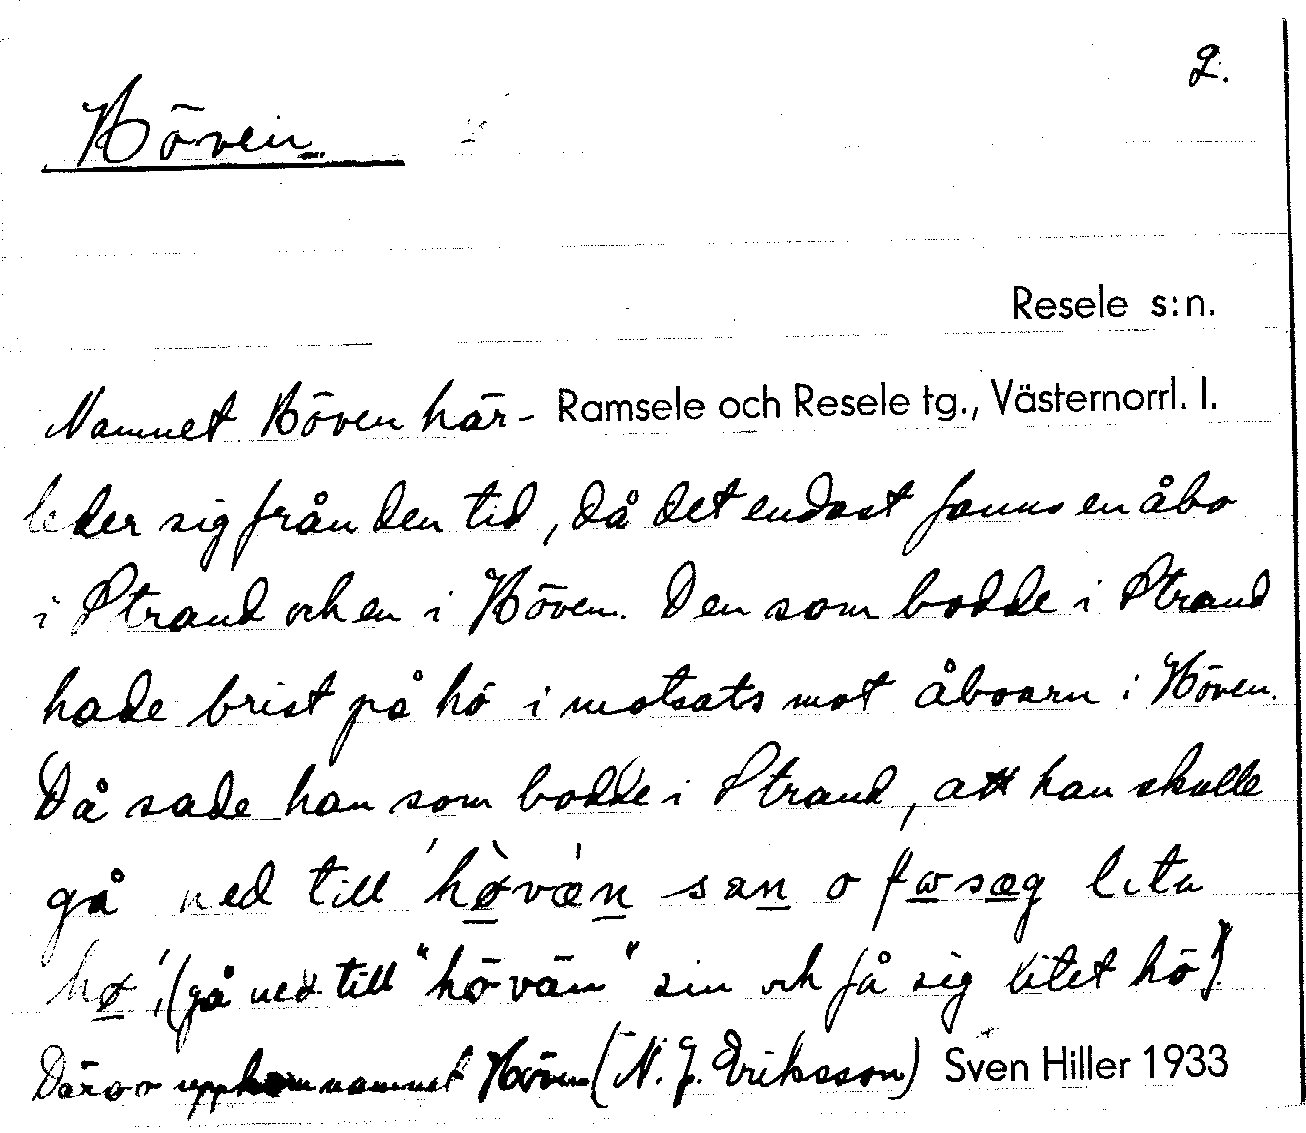 2.
Höven
Resele s:n.
Namnet Höven här- Ramsele och Resele tg., Västernorrl. l.
leder sig från den tid, då det endast fanns en åbo
i Strand och en i Höven. Den som bodde i Strand
hade brist på hö i motsats mot åboarn i Höven.
Då sade han som bodde i Strand, att han skulle
gå ned till 'hø̀væ̀n san o fɷ sæg lita
hø', (gå ned till "hövän" sin och få sig litet hö).
Därav uppkom namnet Höven (N. J. Eriksson) Sven Hiller 1933